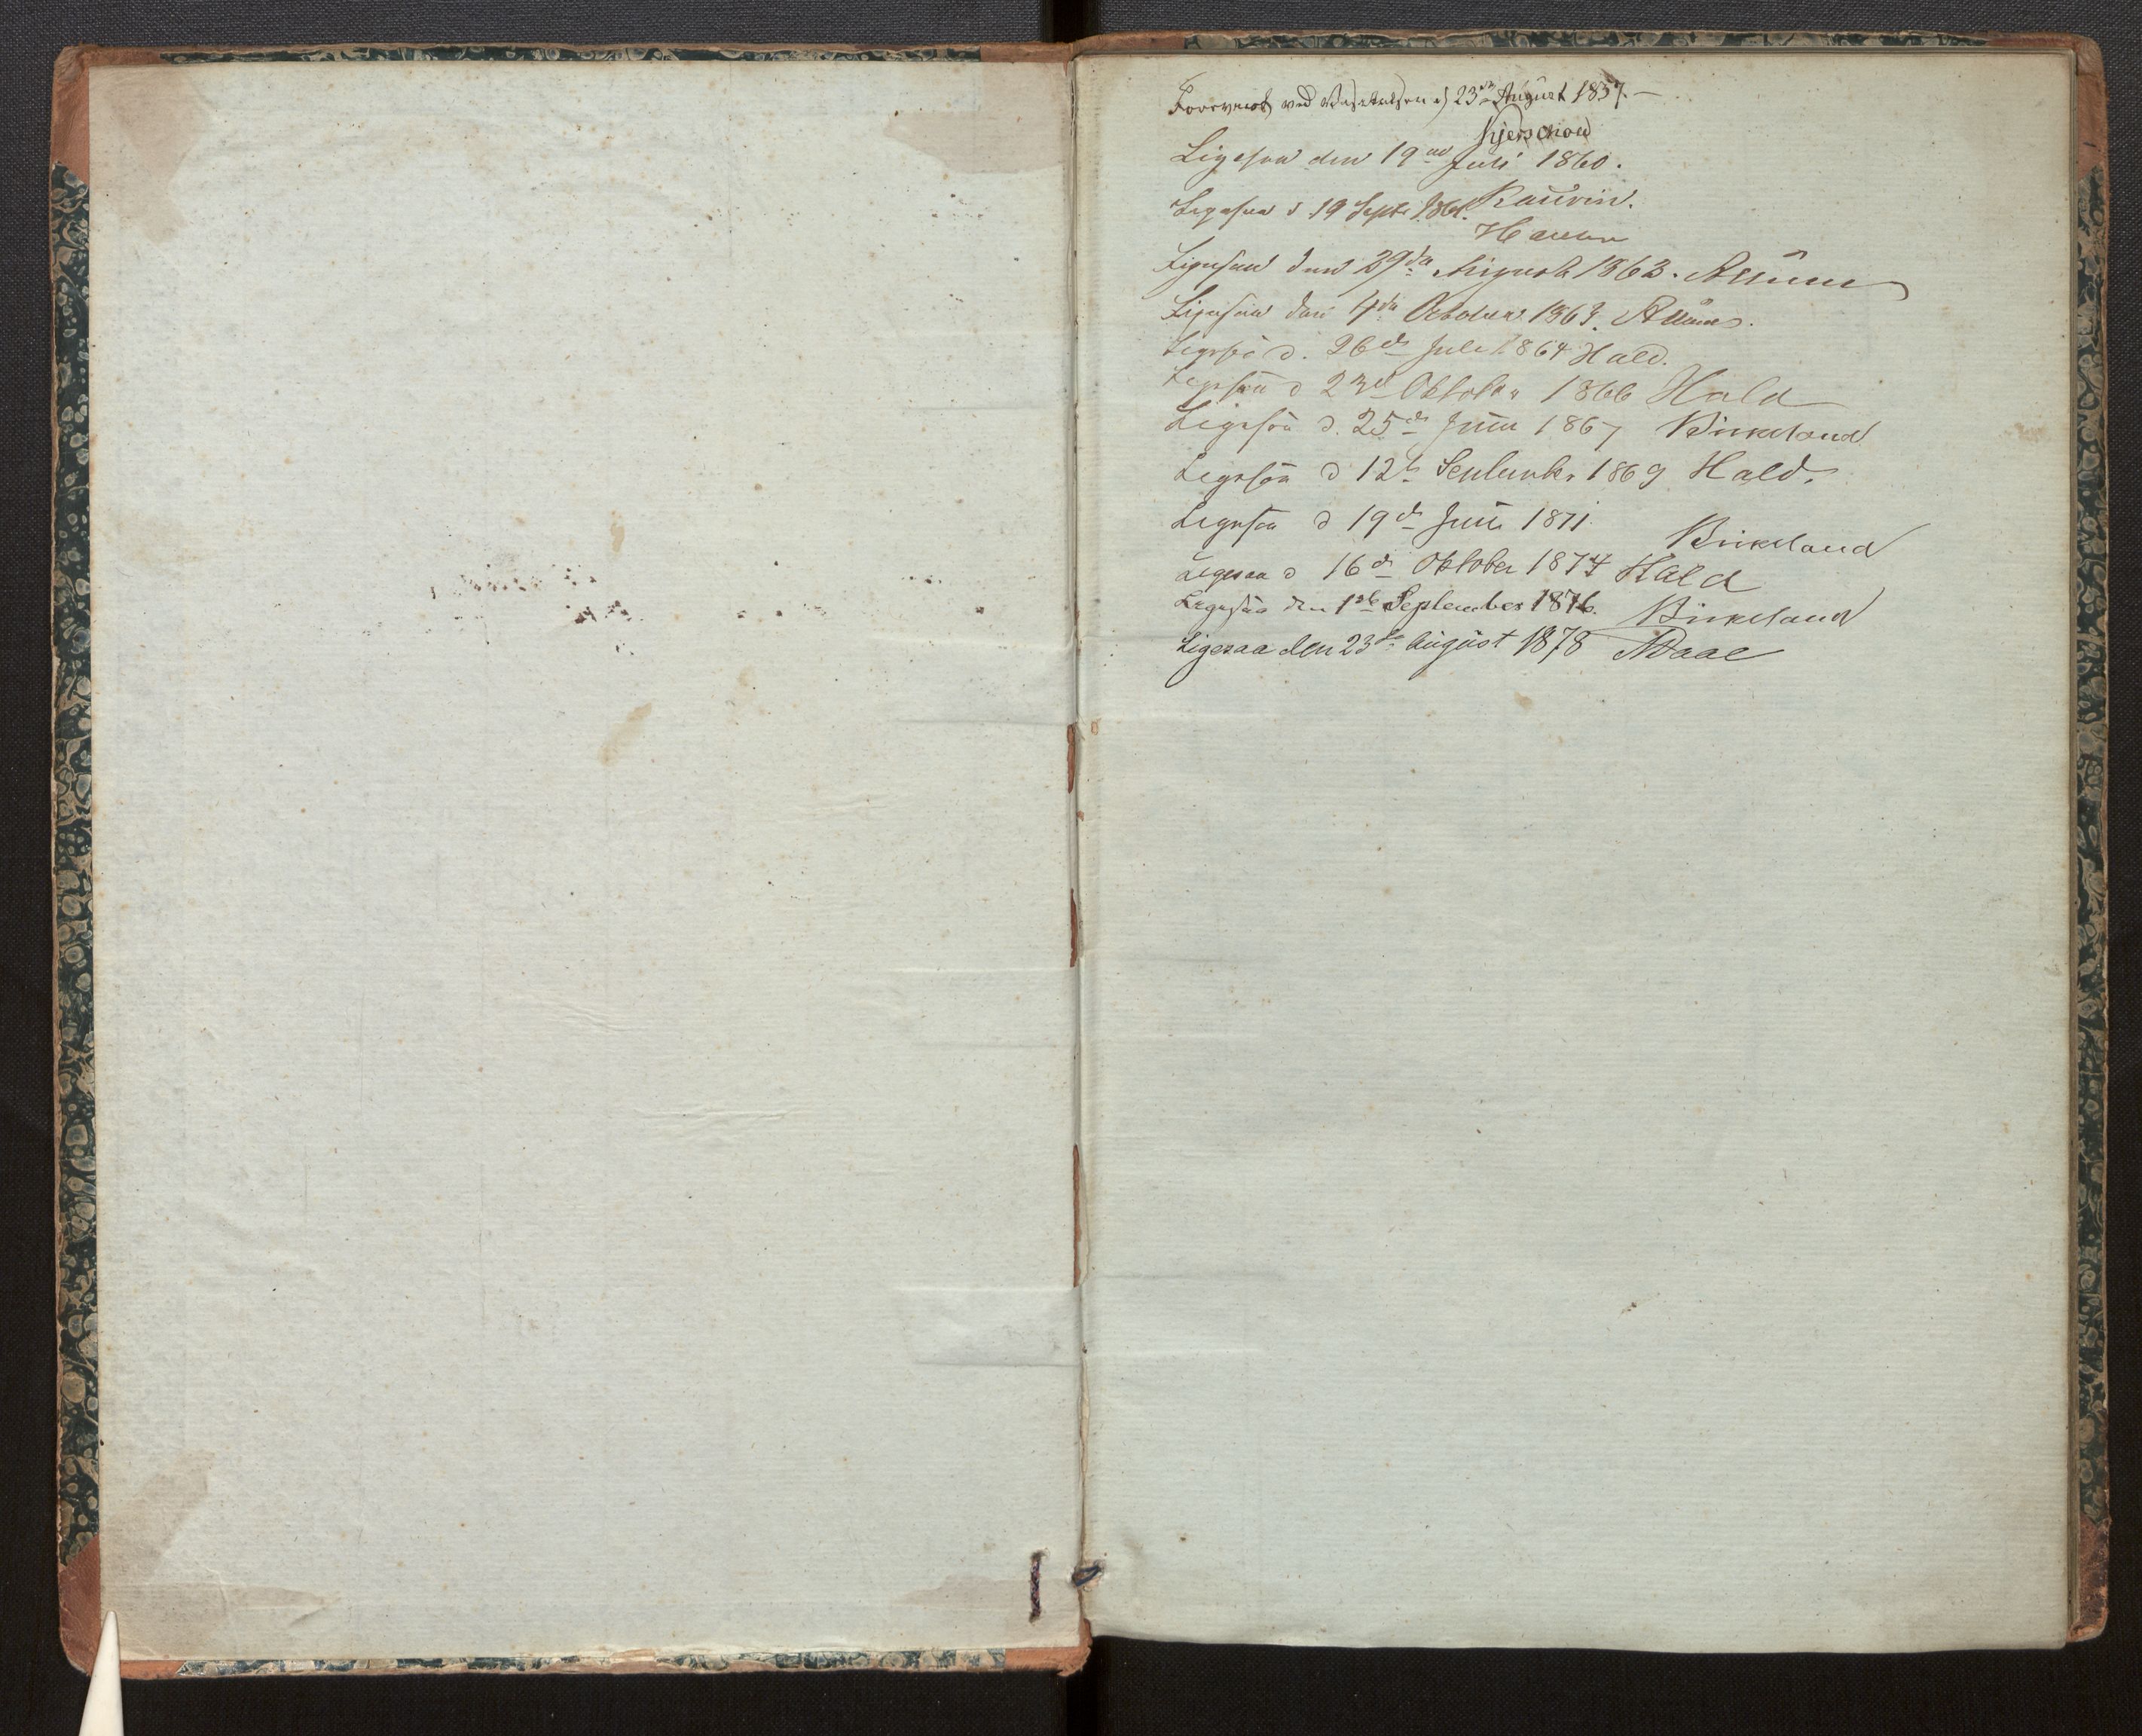 Foreviist ved Visitatsen d 23de August 1857. —
Kjerschow
Ligesaa den 19de Juli 1860.
Kaurin.
Ligesaa d 19 Septr 1861.
Ligesaa den 29de August 1863.
Ligesaa den 4de October 1863.
Ligesaa d. 26de Juli 1864 Hald.
Ligesaa d 23de Oktober 1866 Hald
Ligesaa d. 25de Juni 1867 Birkeland
Ligesaa d 12te September 1869 Hald.
Ligesaa d 19de Juni 1871.
Birkeland
Ligesaa d 16de Oktober 1874 Hald
Ligesaa den 1ste September 1876. Birkeland
Ligesaa den 23de August 1878